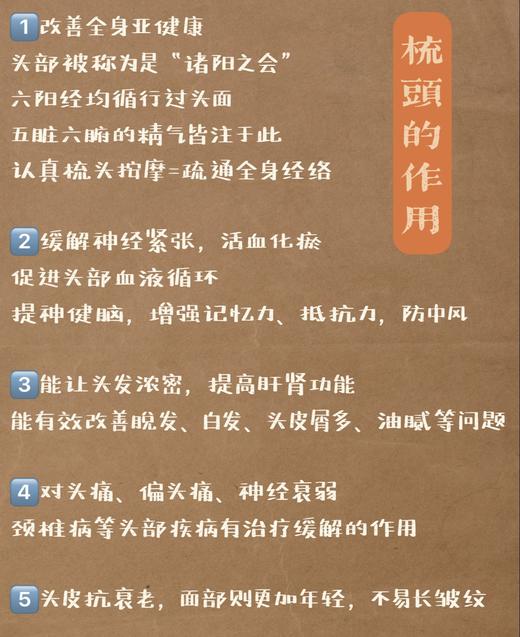 梳頭的作用
1改善全身亚健康
头部被称为是“诸阳之会”
六阳经均循行过头面
五脏六腑的精气皆注于此
认真梳头按摩=疏通全身经络
2缓解神经紧张，活血化瘀
促进头部血液循环
提神健脑，增强记忆力、抵抗力，防中风
3能让头发浓密，提高肝肾功能
能有效改善脱发、白发、头皮屑多、油腻等问题
4对头痛、偏头痛、神经衰弱
颈椎病等头部疾病有治疗缓解的作用
5头皮抗衰老，面部则更加年轻，不易长皱纹